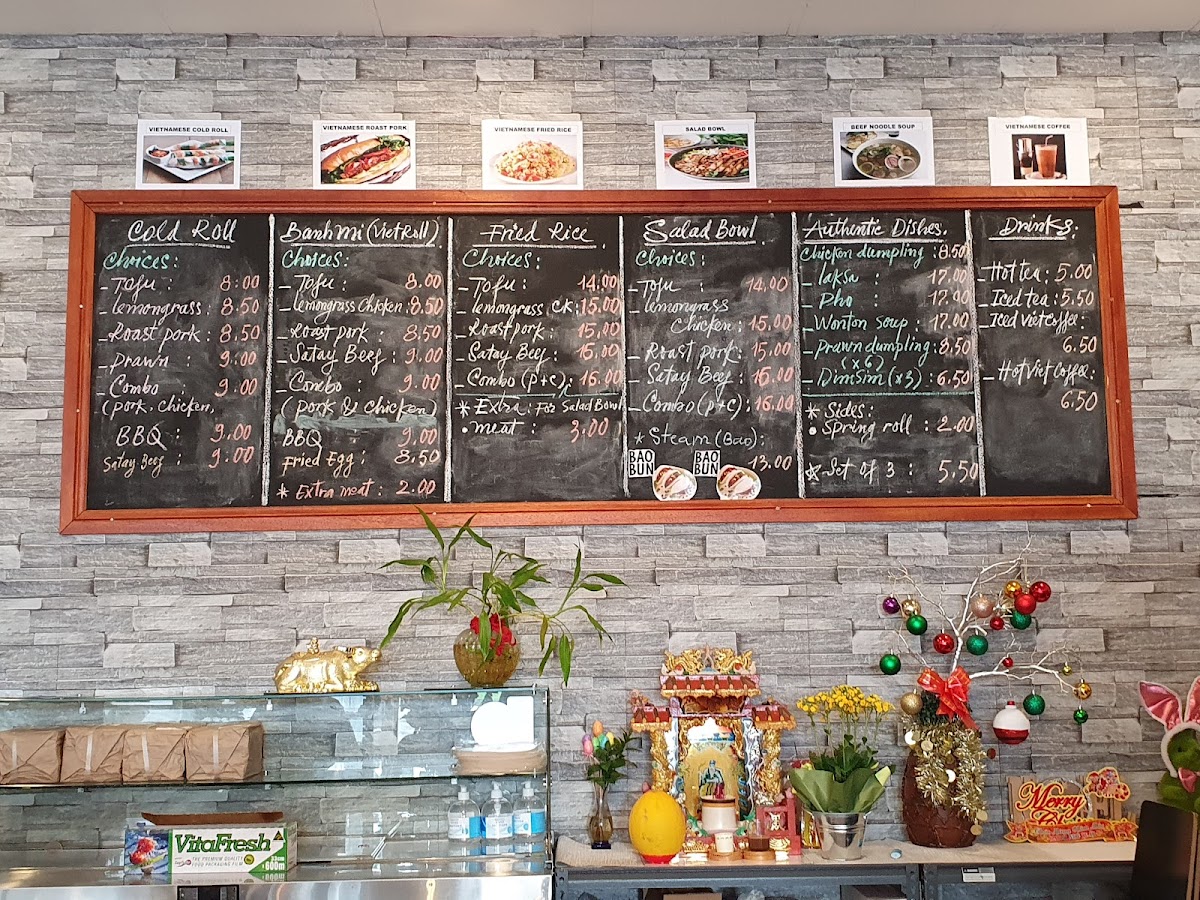 VIETNAMESE COLD ROLL
VIETNAMESE ROAST PORK
VIETNAMESE FRIED RICE
SALAD BOWL
BEEF NOODLE SOUP
VIETNAMESE COFFEE
Cold Roll
Choices:
- Tofu : 8:00
- lemongrass : 8.50
- Roast pork : 8.50
- Prawn : 9:00
- Combo : 9:00
(pork, chicken,
BBQ : 9.00
Satay Beef : 9.00
Banh mi (Viet Roll)
Choices:
- Tofu : 8.00
- lemongrass Chicken : 8.50
- Roast pork : 8.50
- Satay Beef : 9.00
- Combo : 9.00
(pork & chicken)
BBQ : 9.00
Fried Egg : 8.50
* Extra meat : 2.00
Fried Rice
Choices:
- Tofu : 14.00
- lemongrass CK : 15.00
- Roast pork : 15.00
- Satay Beef : 16.00
- Combo (p+c) : 16.00
* Extra : For Salad Bowl
• meat : 3.00
Salad Bowl
Choices:
- Tofu : 14.00
- lemongrass
Chicken : 15.00
- Roast pork : 15.00
- Satay Beef : 16.00
- Combo (p+c) : 16.00
* Steam (Bao) :
BAO BUN
BAO BUN
13.00
Authentic Dishes.
Chicken dumpling : 8.50
- laksa : 17.00
- Pho : 17.00
- Wonton soup : 17.00
- Prawn dumpling : 8.50
(x 6)
- Dimsim (x3) : 6.50
* Sides :
• Spring roll : 2.00
☆ Set of 3 : 5.50
Drinks :
- Hot tea : 5.00
- Iced tea : 5.50
- Iced Viet Coffee :
6.50
- Hot Viet Coffee :
6.50
VitaFresh
THE PREMIUM QUALITY
FOOD PACKAGING FILM
33cm
600m
Merry